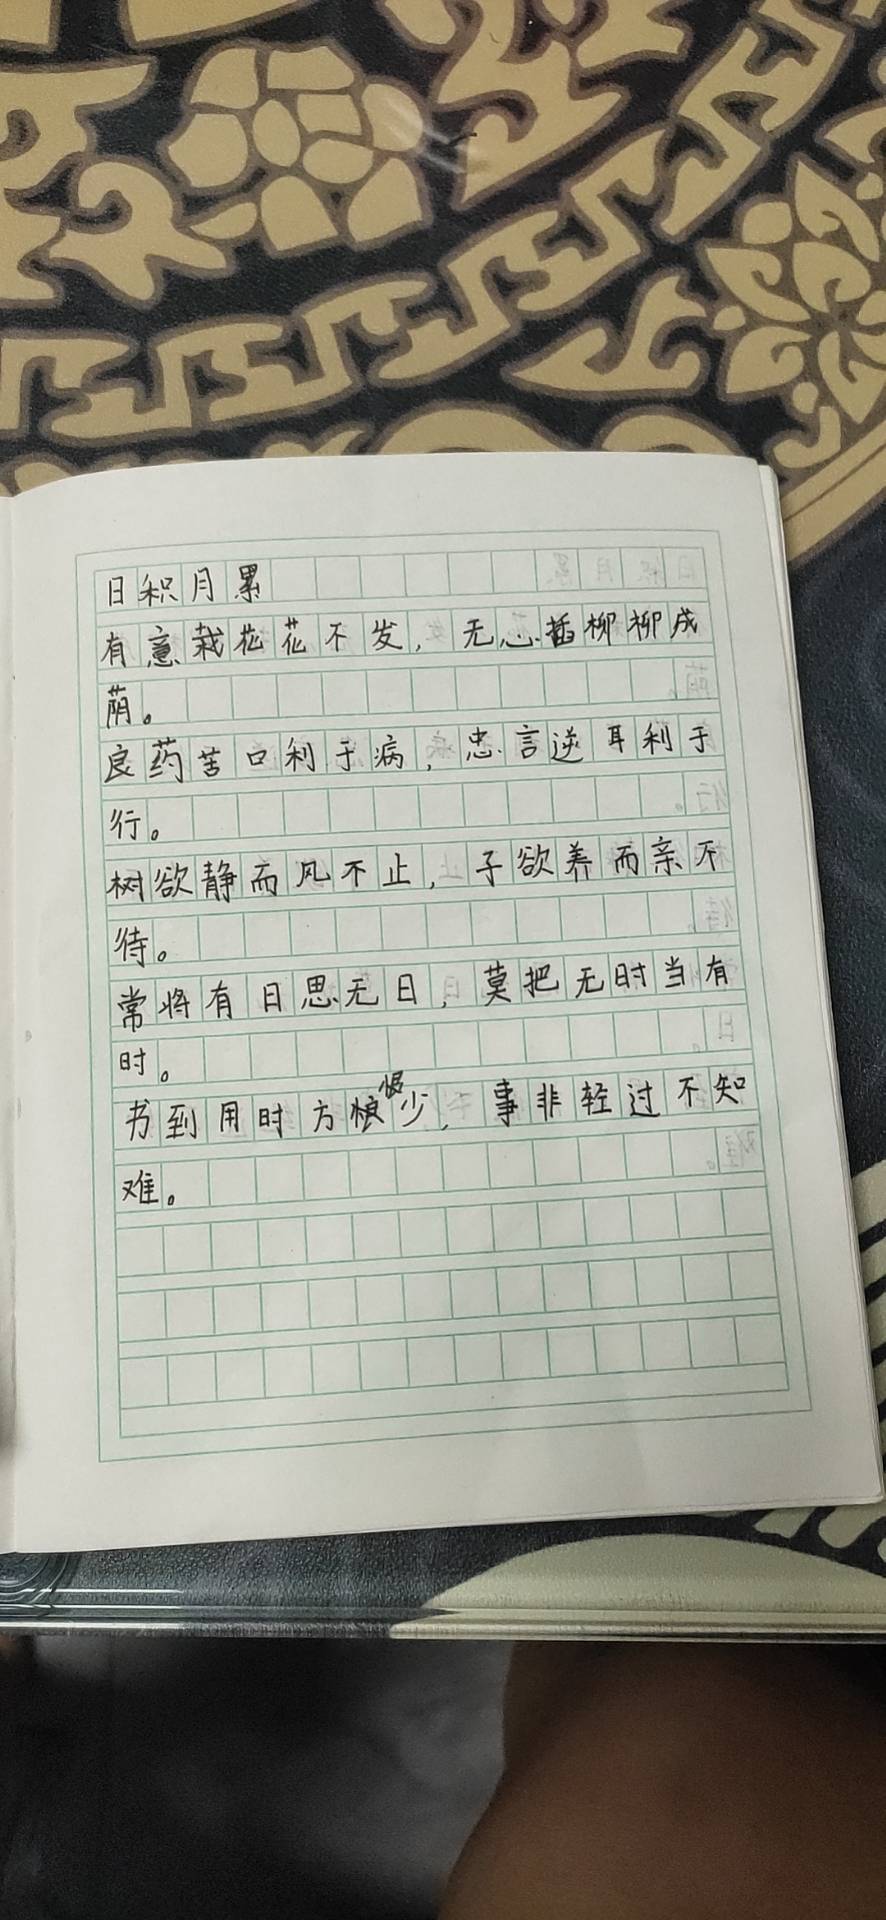 日积月累
有意栽花花不发，无心插柳柳成
荫。
良药苦口利于病，忠言逆耳利于
行。
树欲静而风不止，子欲养而亲不
待。
常将有日思无日，莫把无时当有
时。
书到用时方恨少，事非轻过不知
难。